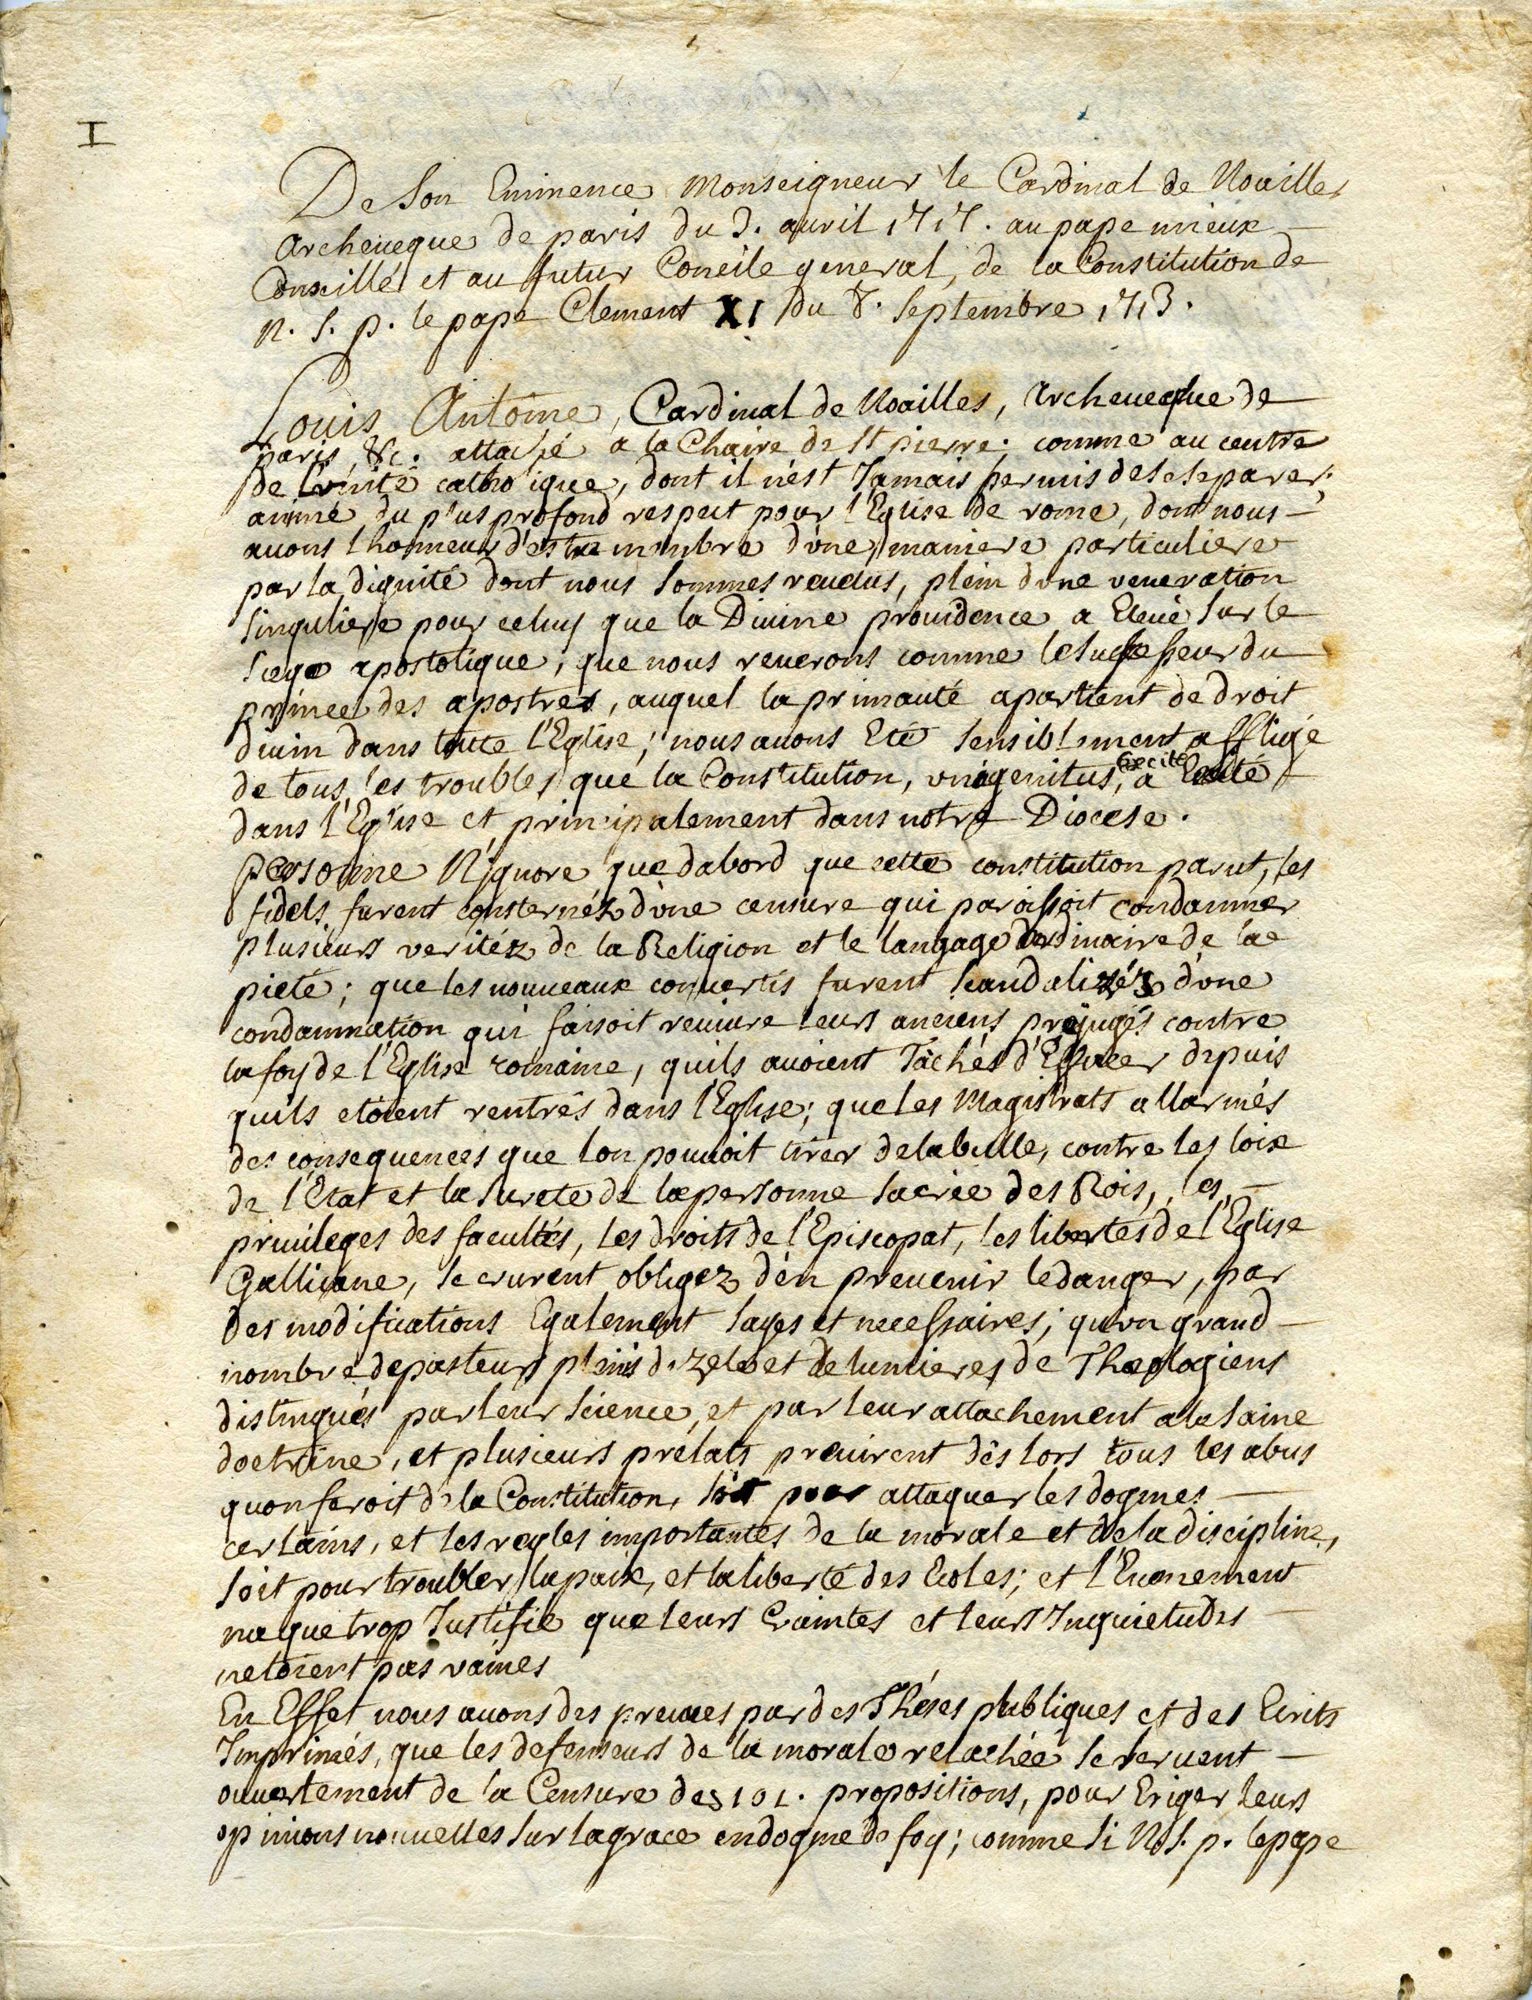 I
De Son Eminence Monseigneur le Cardinal de Noailles
Archeueque de paris du 3. auril 1717. au pape mieux
Conseillé et au futur Concile general, de la Constitution de
N. S. p. le pape Clement XI du 8. Septembre 1713.
Louis Antoine, Cardinal de Noailles, Archeueque de
paris, &c. attaché a la Chaire de St pierre; comme au centre
de l'vnité catholique, dont il n'est Jamais permis de se separer;
animé du plus profond respect pour l'Eglise de rome, dont nous
auons l'honneur d'estre membre d'vne maniere particuliere
par la dignité dont nous sommes reuetus, plein d'vne veneration
singuliere pour celuy que la Diuine prouidence a Eleué sur le
siege apostolique, que nous reuerons comme le successeur du
prince des apostres, auquel la primauté apartient de droit
diuin dans toute l'Eglise; nous auons Eté sensiblement affligé
de tous les troubles que la Constitution, vnigenitus, a Excité
dans l'Eglise et principalement dans notre Diocese.
personne N'ignore que dabord que cette constitution parut, les
fidels furent consternéz d'vne censure qui paroissoit condamner
plusieurs veritéz de la Religion et le langage ordinaire de la
pieté; que les nouueaux conuertis furent scandalizéz d'vne
condamnation qui faisoit reuiure leurs anciens prejugés contre
la foy de l'Eglise romaine, quils auoient Tâchés d'Effacer depuis
quils etoient rentrés dans l'Eglise; que les Magistrats allarmés
des consequences que lon pouuoit tirer de la bulle, contre les loix
de l'Etat et la Sureté de la personne sacrée des Rois, les
priuileges des facultés, les droits de l'Episcopat, les libertés de l'Eglise
Gallicane, se crurent obligez d'en preuenir le danger, par
des modifications Egalement sages et necessaires; qu'vn grand
nombre de pasteurs pleins de zele et de lumieres, de Theologiens
distingués par leur science, et par leur attachement a la saine
doctrine, et plusieurs prélats preuirent dès lors tous les abus
quon feroit de la Constitution, soit pour attaquer les dogmes
certains, et les regles importantes de la morale et de la discipline,
soit pour troubler la paix, et la liberté des Ecoles; et l'Euenement
na que trop Justifié que leurs Craintes et leurs Inquietudes
netoient pas vaines
En Effet nous auons des preuues par des Théses publiques et des Ecrits
Imprimés, que les defenseurs de la morale relachée se seruent
ouuertement de la Censure des 101. propositions, pour Eriger leurs
opinions nouuelles sur la grace en dogme de foy; comme si N. S. p. le pape